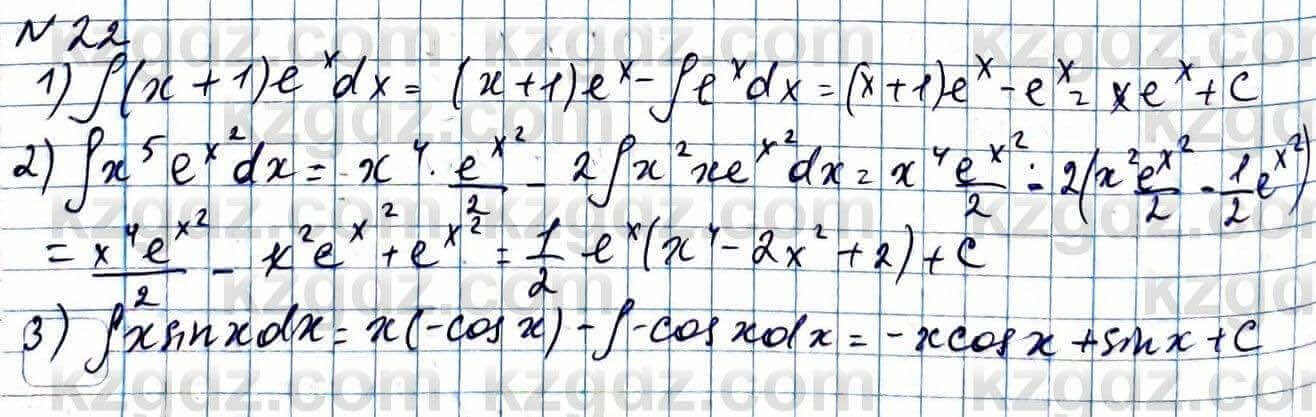 N 22
1) ∫(x+1)e^x dx = (x+1)e^x - ∫e^x dx = (x+1)e^x - e^x = xe^x + C
2) ∫x^5 e^{x^2} dx = x^4 · e^{x^2}/2 - 2∫x^2 xe^{x^2} dx = x^4 e^{x^2}/2 - 2(x^2 e^{x^2}/2 - 1/2 e^{x^2})
= x^4 e^{x^2}/2 - x^2 e^{x^2} + e^{x^2} = 1/2 e^x (x^4 - 2x^2 + 2) + C
3) ∫x sin x dx = x(-cos x) - ∫-cos x dx = -x cos x + sin x + C